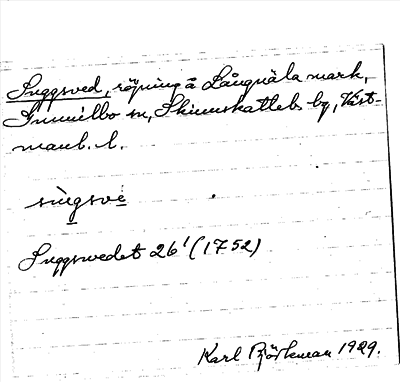 Suggsved, röjning å Långnäla mark,
Gunnilbo sn, Skinnskattebs bg, Väst-
manl. l.
Suggswedet 26' (1752)
Karl Björkman 1929.